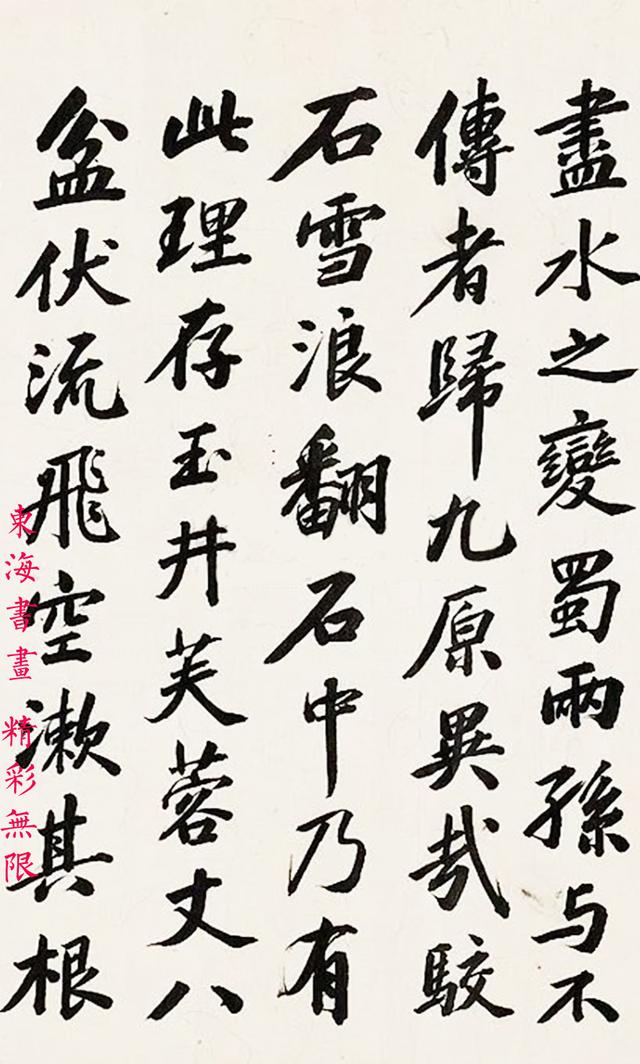 盡水之變蜀兩孫与不
傳者歸九原異哉駮
石雪浪翻石中乃有
此理存玉井芙蓉丈八
盆伏流飛空漱其根
東海書畫 精彩無限